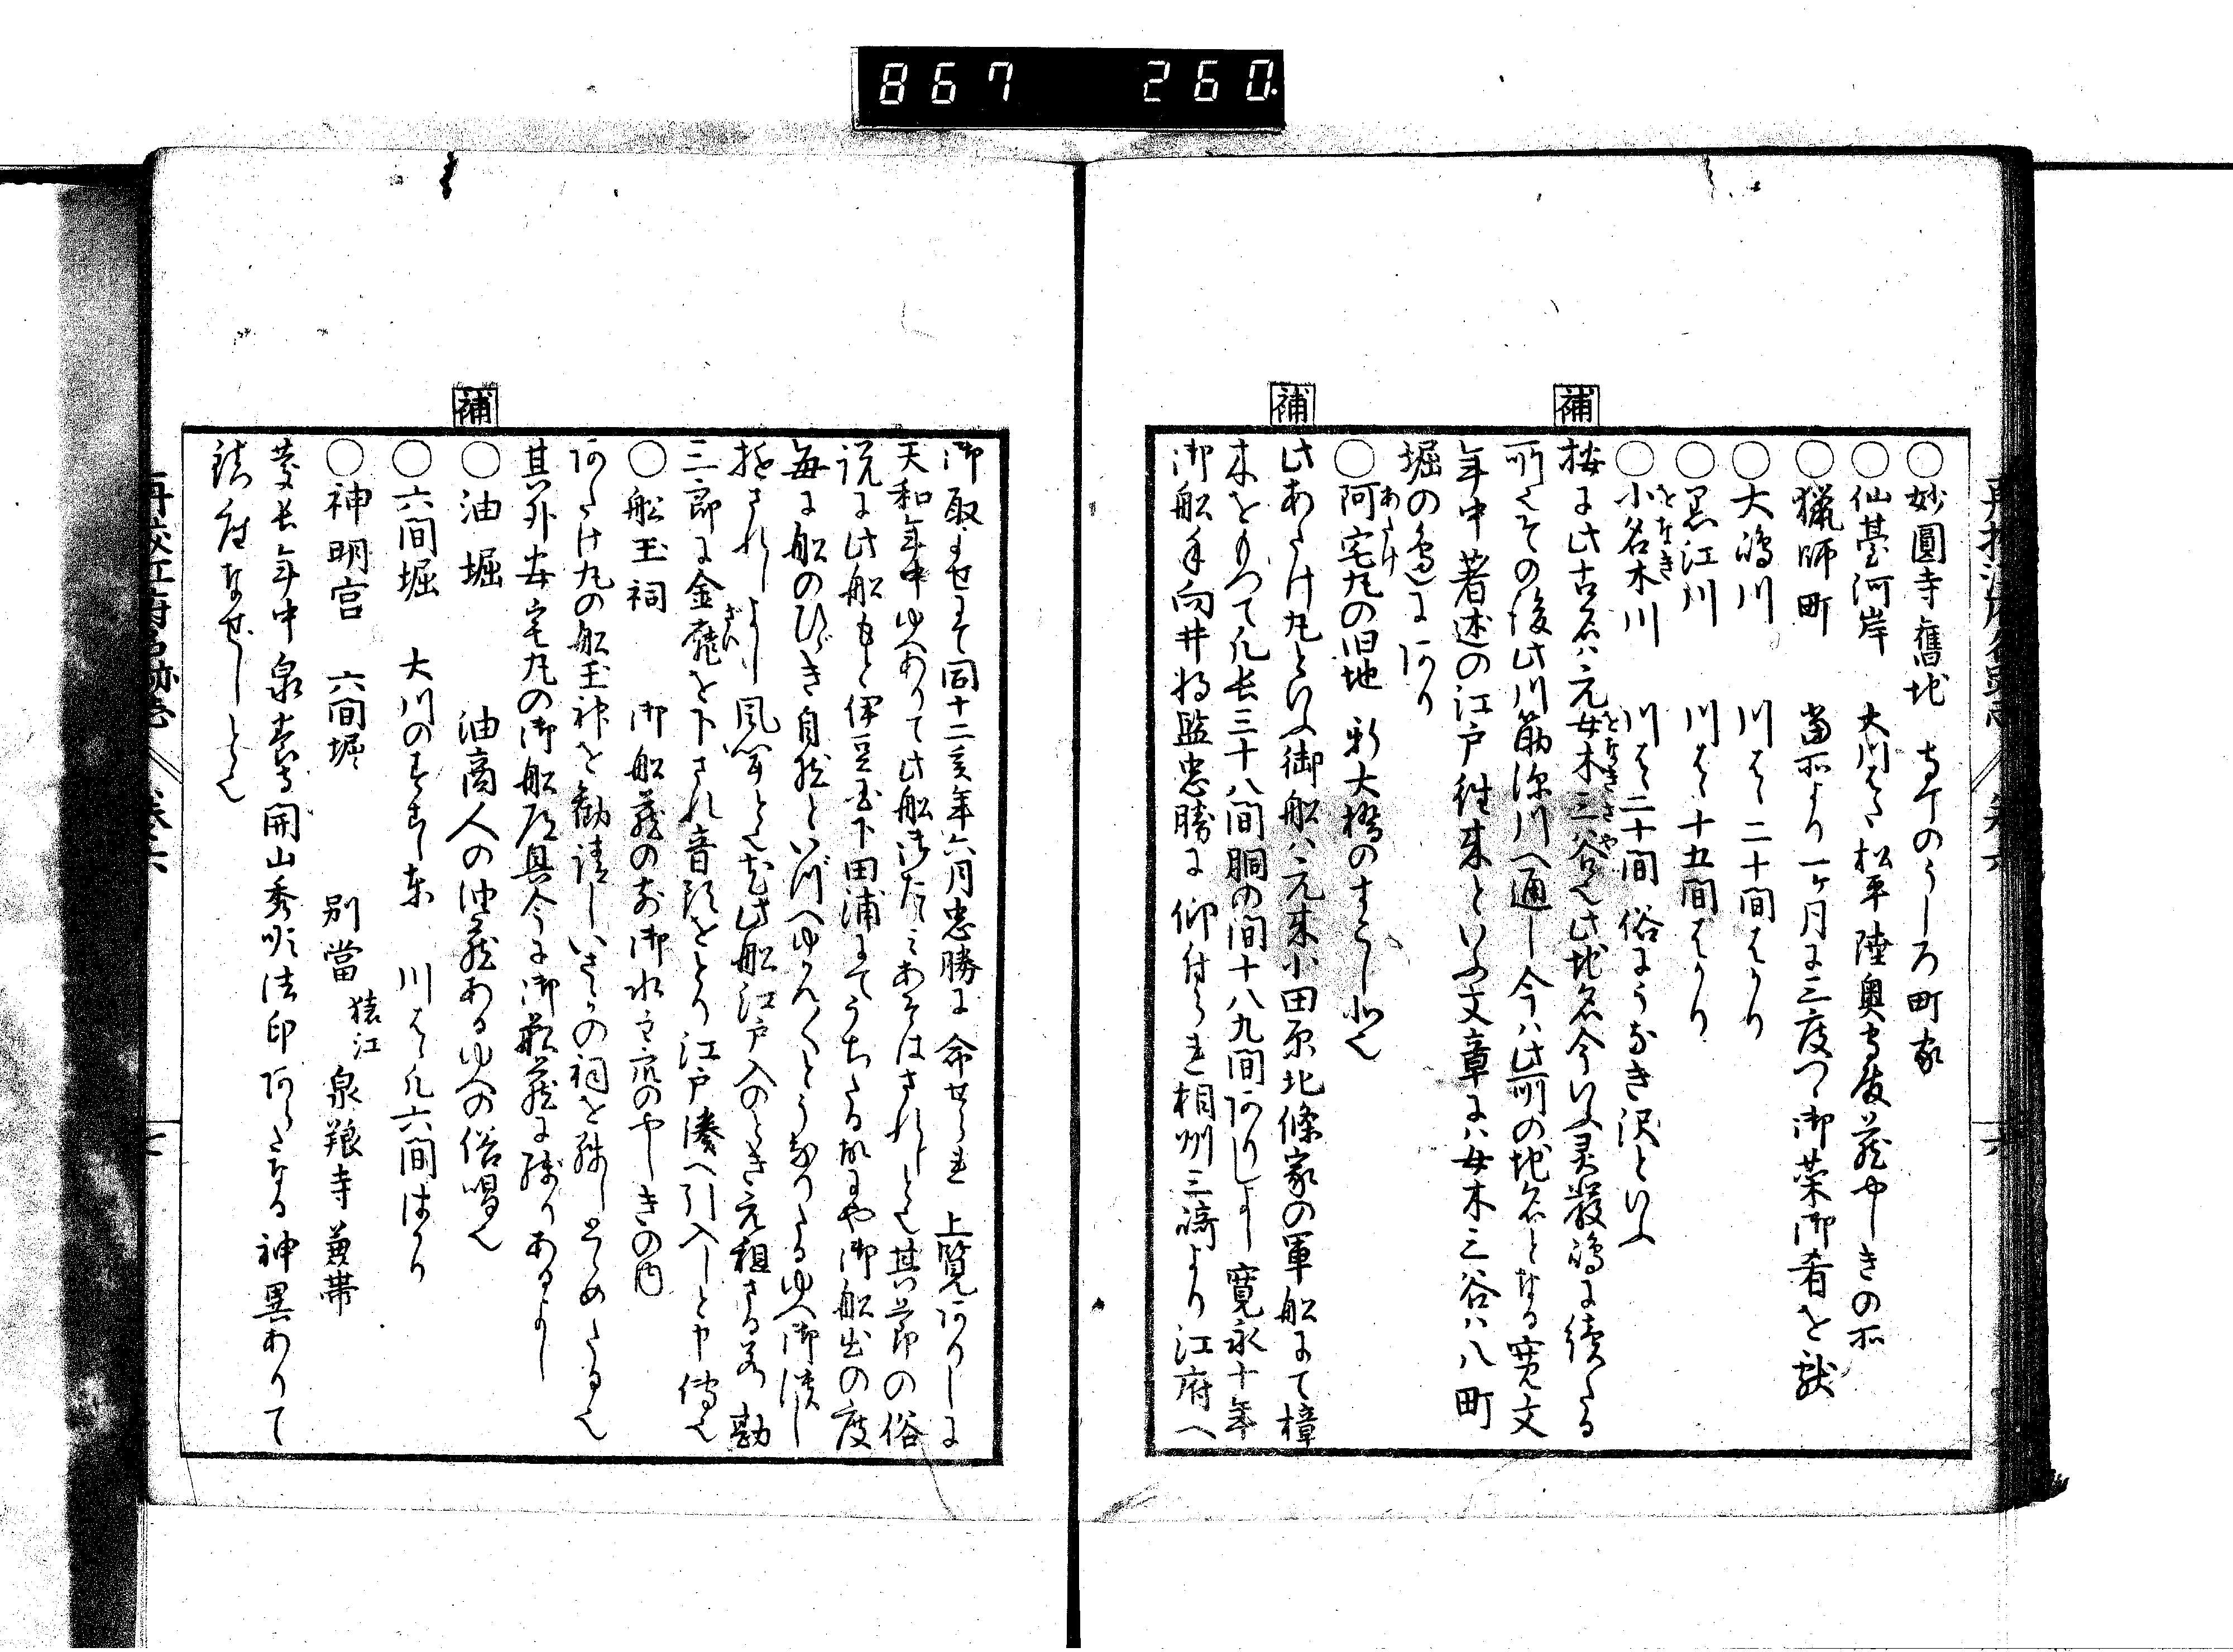 867 260
〇妙圓寺舊地 寺町のうしろ町家
〇仙臺河岸 大川はた松平陸奥守殿藏やしきの所
〇猟師町 當所より一ヶ月に三度つゝ御菜御肴を献
〇大嶋川 川はゝ二十間はかり
〇黒江川 川はゝ十五間はかり
〇小名木川 川はゝ二十間 俗にうなき沢といふ
をなき
補
按に此古名ハ元女木三谷也此地名今いふ 嶋に続たる
をなきさや
所にてその後此川筋深川へ通し今ハ此所の地名となる寛文
年中著述の江戸往来といふ文章にハ女木三谷ハ八町
堀の邉にあり
〇阿宅丸の旧地 新大橋のすこし北也
あたけ
補
此あたけ丸といふ御船ハ元来小田原北條家の軍船にて樟
木をもつて凡長三十八間胴の間十八九間ありしよし寛永十年
御船手向井将監忠勝に仰付られ相州三﨑より江府へ
御取よせにて同十二亥年六月忠勝に命せられ 上覧ありしに
天和年中ゆへありて此船 されしと也其節の俗
説に此船もと伊豆国下田浦にてうちたる故にや御船出の度
毎に船のひゞき自然といづへゆかんとうなりたるゆへ御潰し
遊されしよし風聞と也尤此船江戸入のとき元祖さる若勘
三郎に金 を下され音頭をとり江戸湊へ引入しと申傳也
ざい
〇船玉祠 御船藏の前御水主衆のやしきの内
あたけ丸の船玉神を勧請しいさゝかの祠を残しとゝめたる也
其外安宅丸の御船道具今に御船藏に残りあるよし
補
〇油堀 油商人の油藏あるゆへの俗唱也
〇六間堀 大川のすこし東 川はゝ凡六間はかり
〇神明宮 六間堀 別當 猿江 泉養寺兼帯
慶長年中泉養寺開山秀順法印あらたなる神異ありて
鎮座なせしと也